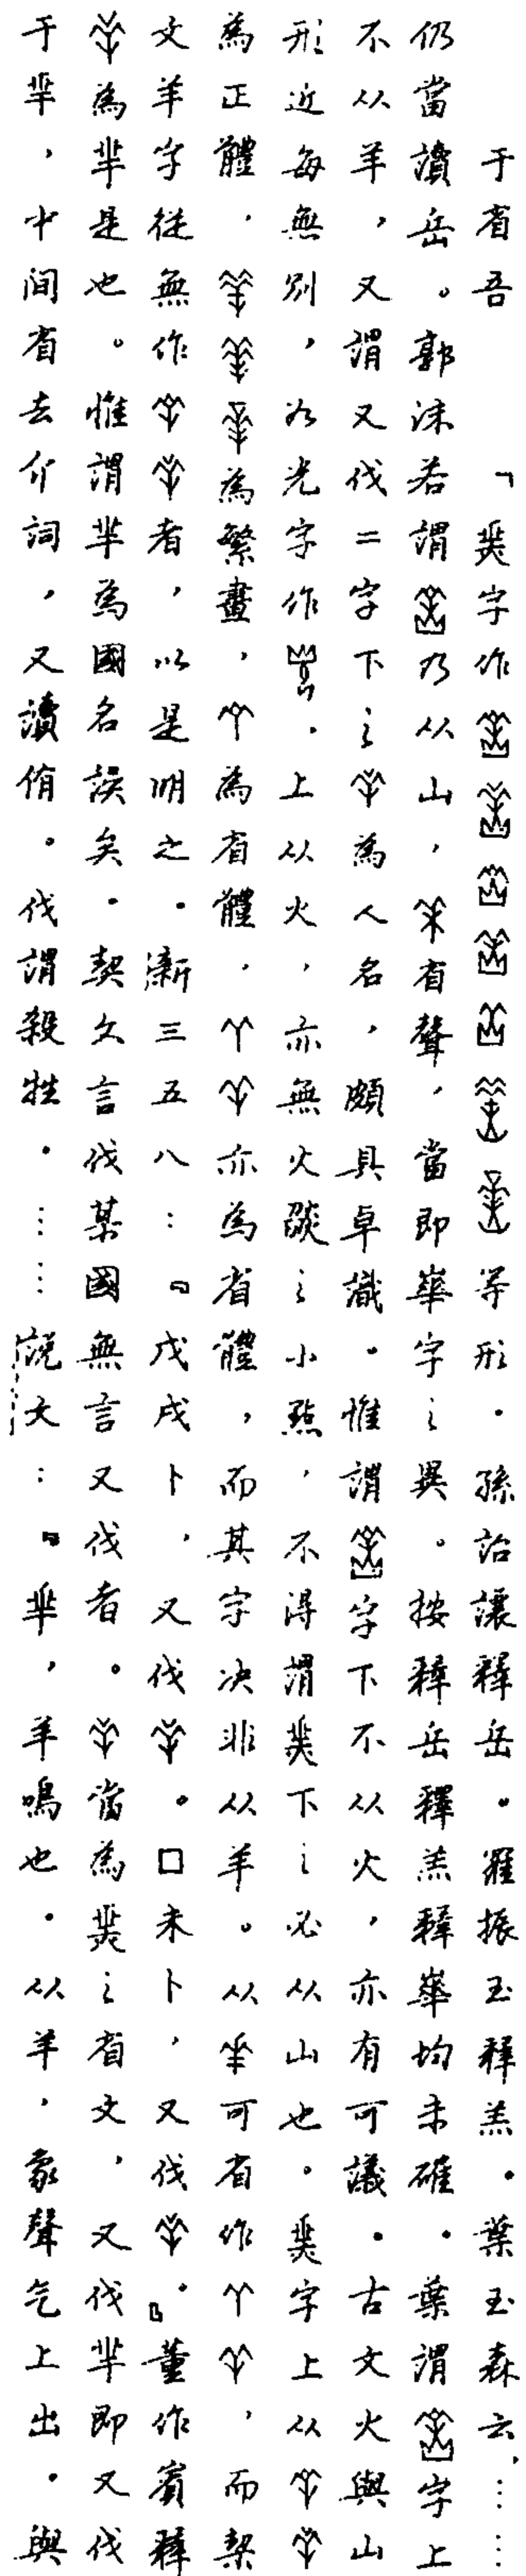 于省吾 「𦎫字作等形。孫詒讓釋岳。羅振玉釋羔。葉玉森云,……
仍當讀岳。郭沫若謂乃从山,有聲,當即華字之異。按釋岳釋羔釋華均未確。葉謂字上
不从羊,又謂又伐二字下之為人名,頗具卓識。惟謂字下不从火,亦有可議。古文火與山
形近每無別,如光字作,上从火,亦無火燄之小點,不得謂下之必从山也。字上从
為正體,為繁畫,為省體,亦為省體,而其字決非从羊。从可省作,而契
文羊字從無作者,以是明之。新三五八:『戊戌卜,又伐。□未卜,又伐。』董作賓釋
為羋是也。惟謂羋為國名誤矣。契文言伐某國無言又伐者。當為之省文,又伐羋即又伐
于羋,中間省去介詞,又讀侑。伐謂殺牲。……說文:『羋,羊鳴也。从羊,象聲气上出。與